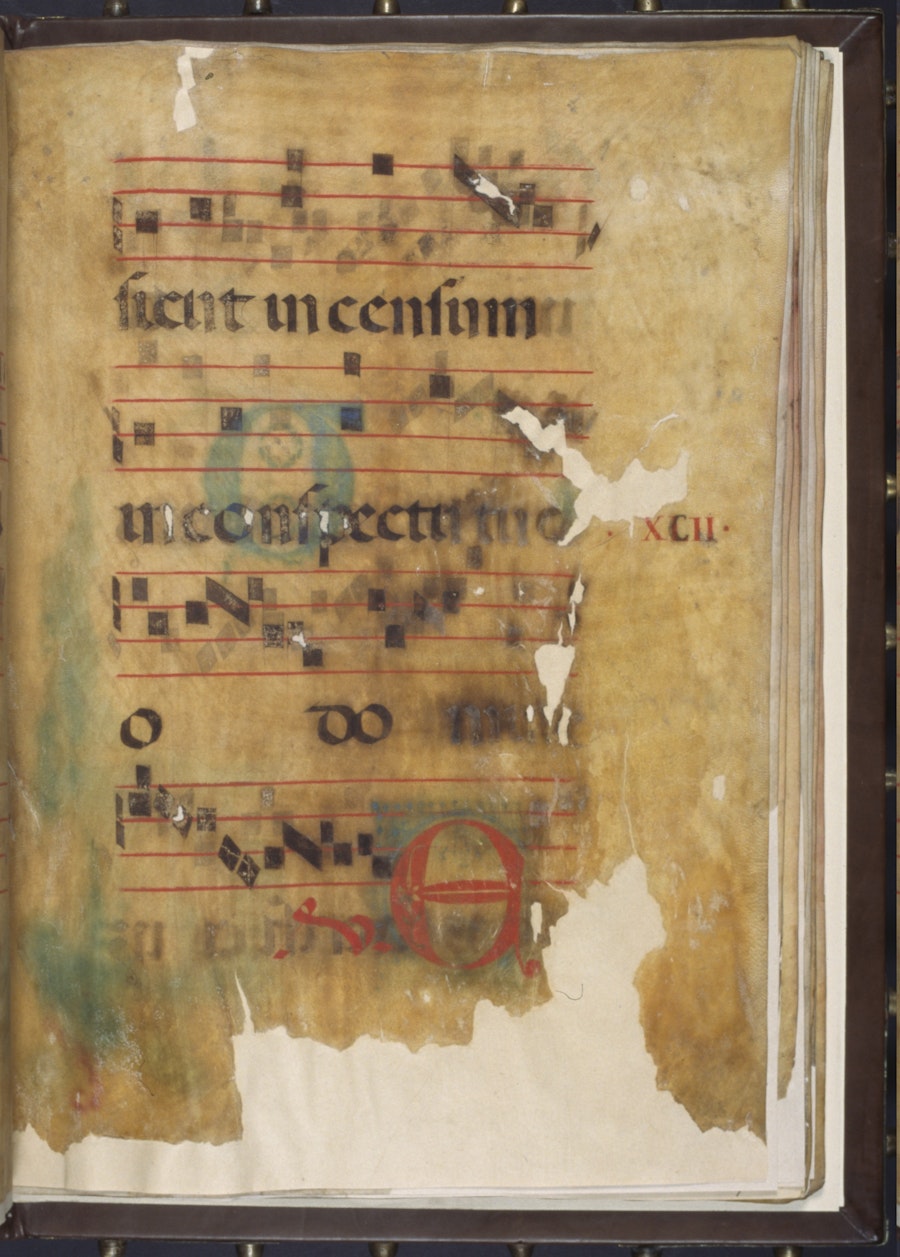 sicut incensum
in conspectu tuo
· XCII ·
o do mine